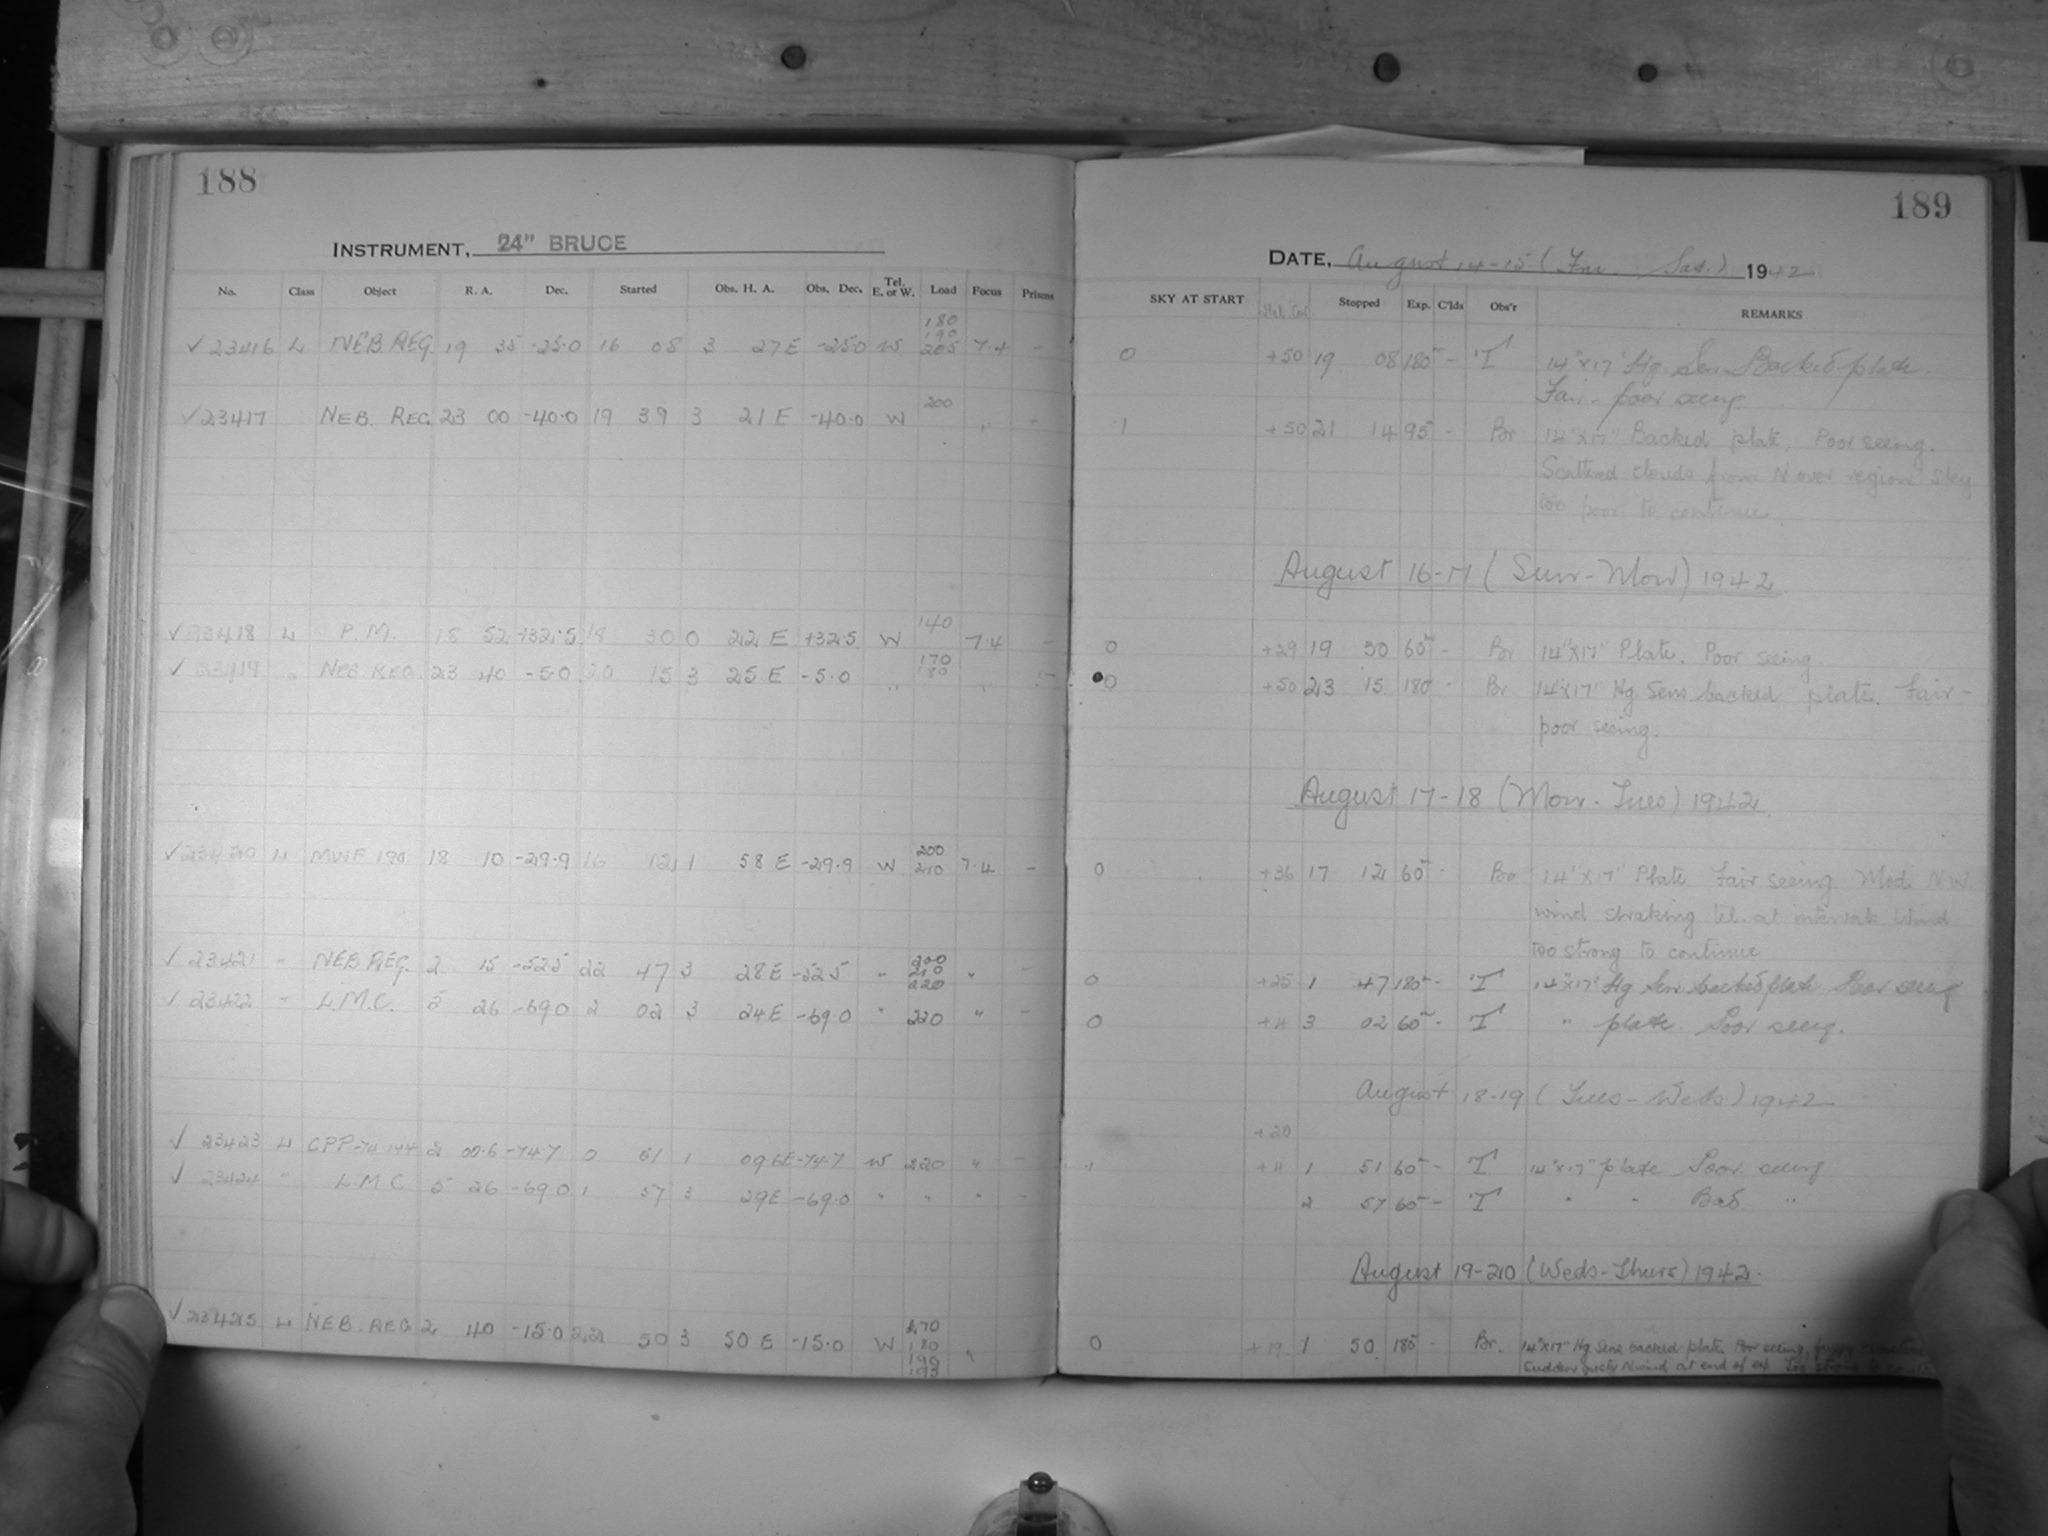 188
INSTRUMENT, 24" BRUCE
No. Class Object R. A. Dec. Started Obs. H. A. Obs. Dec. Tel. E. or W. Load Focus Prisms
180
190
✓ 23416 L NEB. REG. 19 35 -25.0 16 08 3 27 E -25.0 W 205 7.4 -
200
✓ 23417 NEB. REG. 23 00 -40.0 19 39 3 21 E -40.0 W " -
140
✓ 23418 L P. M. 18 52 +32.5 18 30 0 22 E +32.5 W 7.4 -
170
✓ 23419 " NEB. REG. 23 40 -5.0 20 15 3 25 E -5.0 " 180 " -
200
✓ 23420 L MWF 190 18 10 -29.9 16 12 1 58 E -29.9 W 210 7.4 -
200
✓ 23421 " NEB. REG. 2 15 -52.5 22 47 3 28 E -52.5 " 210 " -
220
✓ 23422 " L.M.C. 5 26 -69.0 2 02 3 24 E -69.0 " 220 " -
✓ 23423 L CPP-74 144 2 00.6 -74.7 0 51 1 09 E -74.7 W 220 " -
✓ 23424 " L.M.C. 5 26 -69.0 1 57 3 29 E -69.0 " " " -
170
✓ 23425 L NEB. REG. 2 40 -15.0 22 50 3 50 E -15.0 W 180 "
190
195
189
DATE, August 14-15 (Fri. Sat.) 1942
SKY AT START Stopped Exp. C'lds Obs'r REMARKS
0 +50 19 08 180 - T 14"x17" Hg Sen. Backed plate.
Fair - poor seeing
1 +50 21 14 95 - Br 14"x17" Backed plate. Poor seeing.
Scattered clouds from N over region Sky
too poor to continue
August 16-17 (Sun-Mon) 1942
0 +29 19 30 60 - Br 14"x17" Plate. Poor seeing.
0 +50 23 15 180 - Br 14"x17" Hg Sens. backed plate. Fair-
poor seeing.
August 17-18 (Mon-Tues) 1942
0 +36 17 12 60 - 14"x17" Plate Fair seeing Mod. NW
wind shaking tel. at intervals Wind
too strong to continue
0 +25 1 47 180 - T 14"x17" Hg Sen. backed plate Poor seeing
0 +4 3 02 60 - T " plate. Poor seeing.
August 18-19 (Tues-Weds) 1942
+20
+4 1 51 60 - T 14"x17" plate Poor seeing
2 57 60 - T " " Bad "
August 19-20 (Weds-Thurs) 1942
0 +19 1 50 180 - Br. 14"x17" Hg Sens backed plate. Poor seeing,
Sudden gusty N wind at end of ex. Too strong to